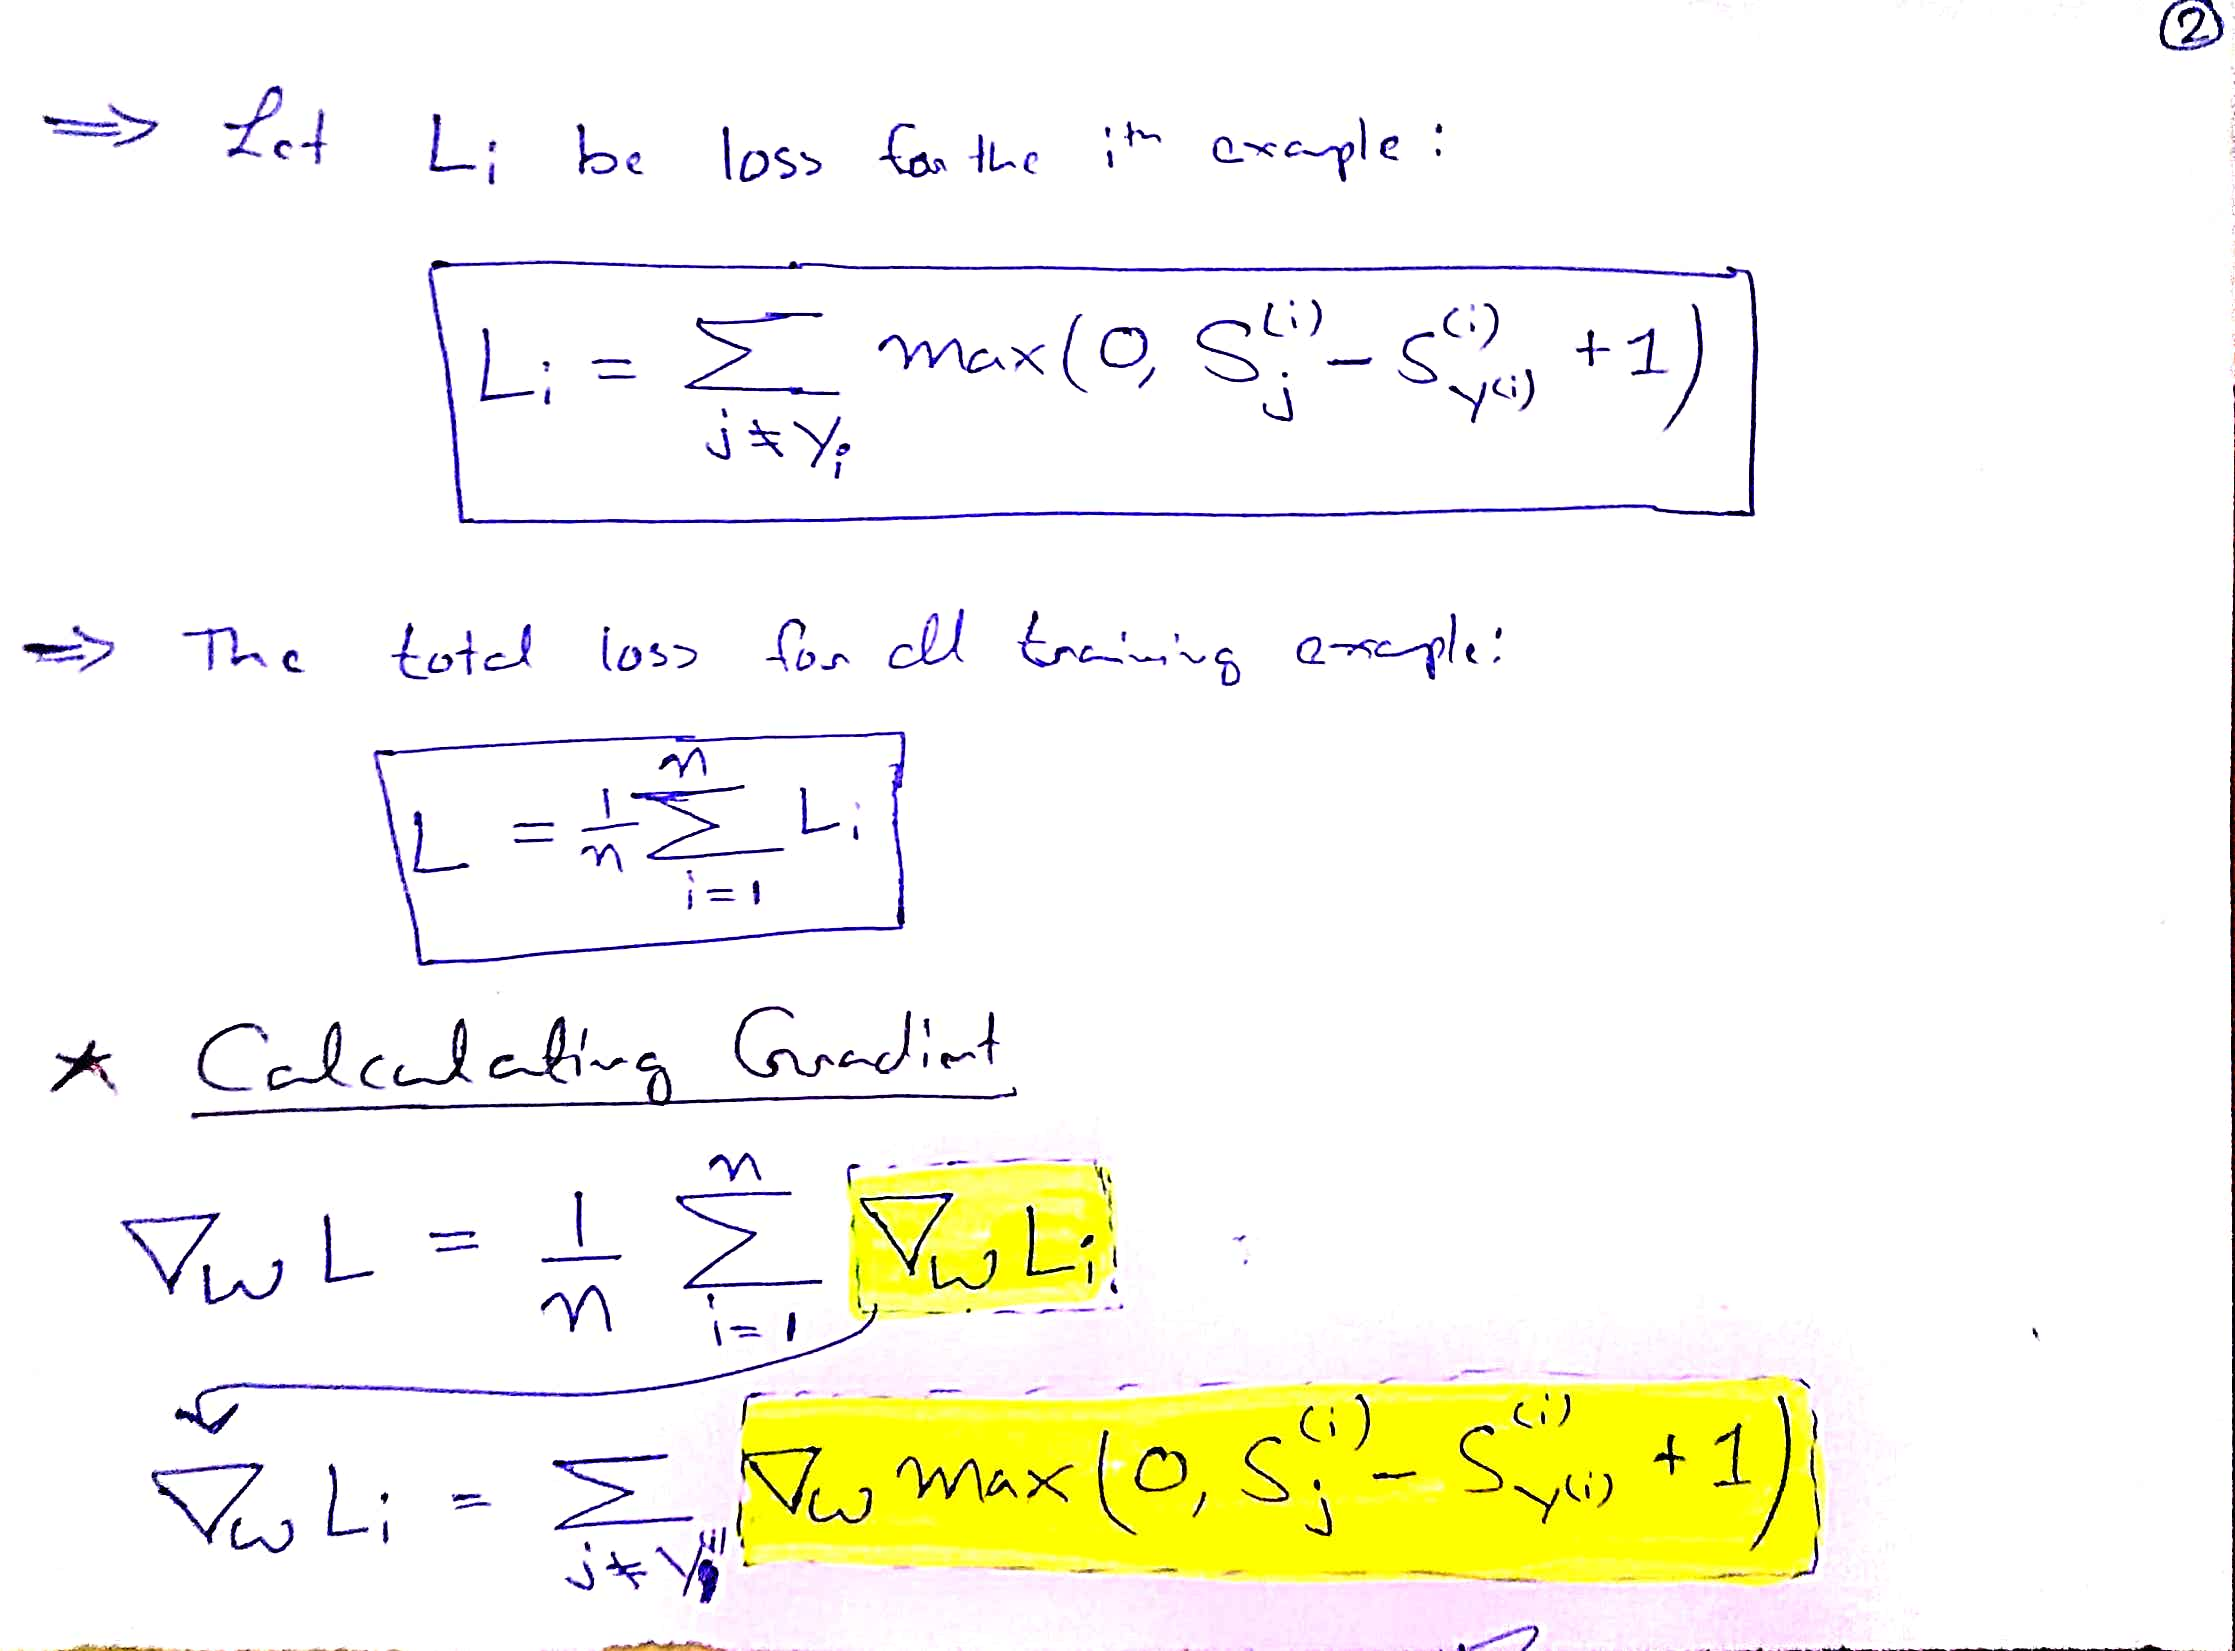 ②
⇒ Let Lᵢ be loss for the iᵗʰ example :
Lᵢ = Σ_{j≠yᵢ} max(0, S_j^{(i)} − S_{y(i)}^{(i)} + 1)
⇒ The total loss for all training example:
L = 1/n Σ_{i=1}^{n} Lᵢ
* Calculating Gradient
∇_w L = 1/n Σ_{i=1}^{n} ∇_w Lᵢ
∇_w Lᵢ = Σ_{j≠y^{(i)}} ∇_w max(0, S_j^{(i)} − S_{y(i)}^{(i)} + 1)